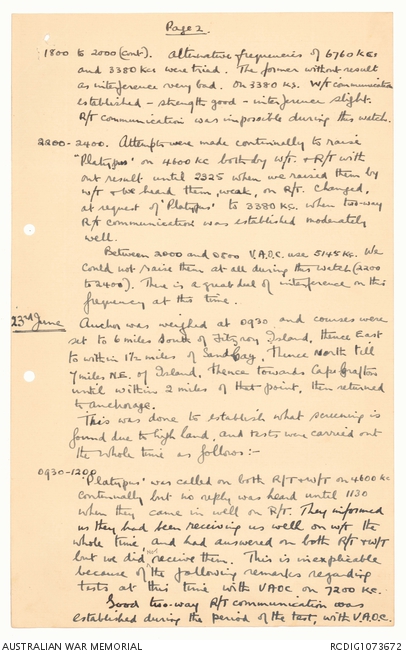 Page 2.
1800 to 2000 (cont). Alternative frequencies of 6760 Kcs
and 3380 Kcs were tried. The former without result
as interference very bad. On 3380 Kcs. W/T communication
established - strength good - interference slight.
R/T communication was impossible during this watch.
2200-2400. Attempts were made continually to raise
"Platypus" on 4600 Kc both by W/T. & R/T with
out result until 2325 when we raised them by
W/T & we heard them, weak, on R/T. Changed,
at request of "Platypus" to 3380 Kc. when two-way
R/T communication was established moderately
well.
Between 2000 and 0800 V.A.O.C. use 5145 Kc. We
could not raise them at all during this watch (2200
to 2400). There is a great deal of interference on this
frequency at this time.
23rd June
Anchor was weighed at 0930 and courses were
set to 6 miles South of Fitzroy Island, thence East
to within 1½ miles of Sand Cay. Thence North till
7 miles N.E. of Island, thence towards Cape Grafton
until within 2 miles of that point, then returned
to anchorage.
This was done to establish what screening is
found due to high land, and tests were carried out
the whole time as follows:-
0930-1200
"Platypus" was called on both R/T & W/T on 4600 Kc
continually but no reply was heard until 1130
when they came in well on R/T. They informed
us they had been receiving us well on W/T the
whole time and had answered on both R/T & W/T
but we did not receive them. This is inexplicable
because of the following remarks regarding
tests at this time with VAOC on 7200 Kc.
Good two-way R/T communication was
established during the period of the test, with V.A.O.C.
AUSTRALIAN WAR MEMORIAL
RCDIG1073672